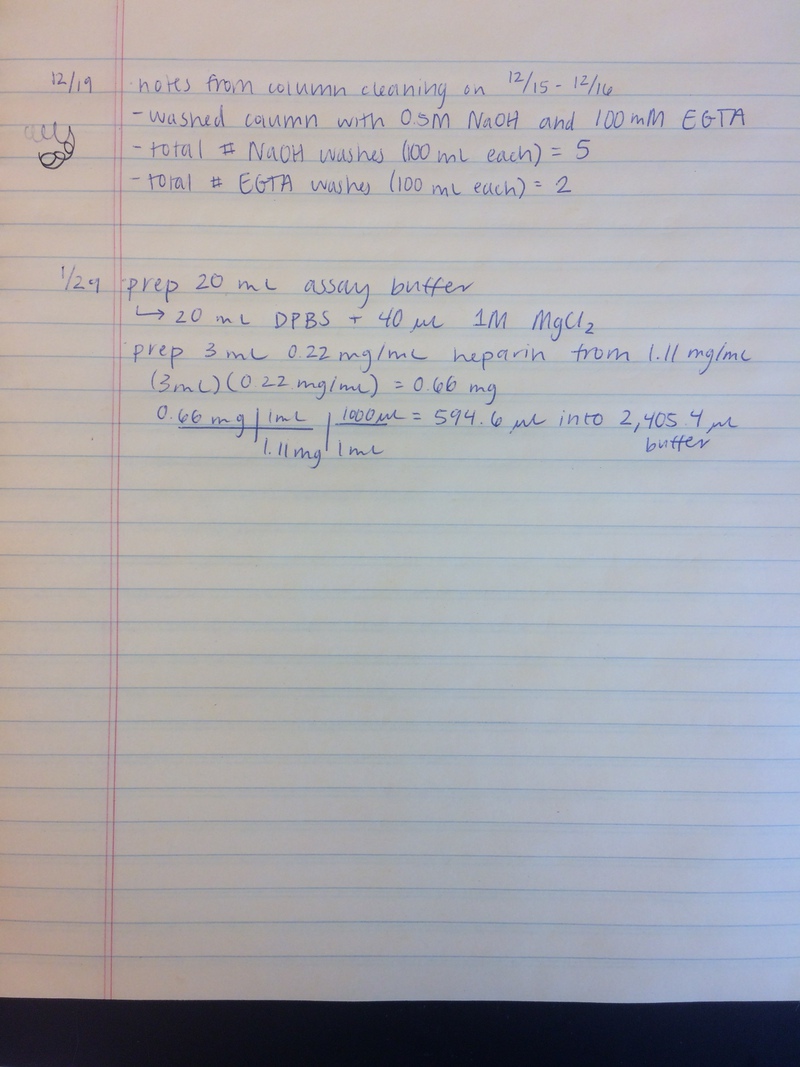 12/19 notes from column cleaning on 12/15 - 12/16
- washed column with 0.5M NaOH and 100 mM EGTA
- total # NaOH washes (100 mL each) = 5
- total # EGTA washes (100 mL each) = 2
1/29 prep 20 mL assay buffer
↳ 20 mL DPBS + 40 µL 1M MgCl₂
prep 3 mL 0.22 mg/mL heparin from 1.11 mg/mL
(3mL)(0.22 mg/mL) = 0.66 mg
0.66 mg | 1mL | 1000µL = 594.6 µL into 2,405.4 µL
1.11mg | 1mL buffer